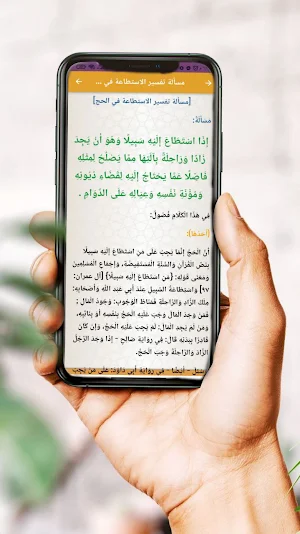 مسألة تفسير الاستطاعة في الحج ...
[مسألة تفسير الاستطاعة في الحج]
مَسْأَلَةٌ:
إِذَا اسْتَطَاعَ إِلَيْهِ سَبِيلًا وَهُوَ أَنْ يَجِدَ
زَادًا وَرَاحِلَةً بِآلَتِهَا مِمَّا يَصْلُحُ لِمِثْلِهِ
فَاضِلًا عَمَّا يَحْتَاجُ إِلَيْهِ لِقَضَاءِ دُيُونِهِ
وَمُؤْنَةِ نَفْسِهِ وَعِيَالِهِ عَلَى الدَّوَامِ .
فِي هَذَا الْكَلَامِ فُصُولٌ:
[أَحَدُهَا]:
أَنَّ الْحَجَّ إِنَّمَا يَجِبُ عَلَى مَنِ اسْتَطَاعَ إِلَيْهِ سَبِيلًا
بِنَصِّ الْقُرْآنِ وَالسُّنَّةِ الْمُسْتَفِيضَةِ، وَإِجْمَاعِ الْمُسْلِمِينَ
وَمَعْنَى قَوْلِهِ: {مَنِ اسْتَطَاعَ إِلَيْهِ سَبِيلًا} [آل عمران:
٩٧] وَاسْتِطَاعَةُ السَّبِيلِ عِنْدَ أَبِي عَبْدِ اللَّهِ وَأَصْحَابِهِ:
مِلْكُ الزَّادِ وَالرَّاحِلَةِ فَمَنَاطُ الْوُجُوبِ: وُجُودُ الْمَالِ ;
فَمَنْ وَجَدَ الْمَالَ وَجَبَ عَلَيْهِ الْحَجُّ بِنَفْسِهِ أَوْ بِنَائِبِهِ،
وَمَنْ لَمْ يَجِدِ الْمَالَ: لَمْ يَجِبْ عَلَيْهِ الْحَجُّ، وَإِنْ كَانَ
قَادِرًا بِبَدَنِهِ قَالَ: فِي رِوَايَةِ صَالِحٍ - إِذَا وَجَدَ الرَّجُلُ
الزَّادَ وَالرَّاحِلَةَ وَجَبَ الْحَجُّ.
- أَيْضًا - فِي رِوَايَةِ أَبِي دَاوُدَ: عَلَى مَنْ يَجِبُ